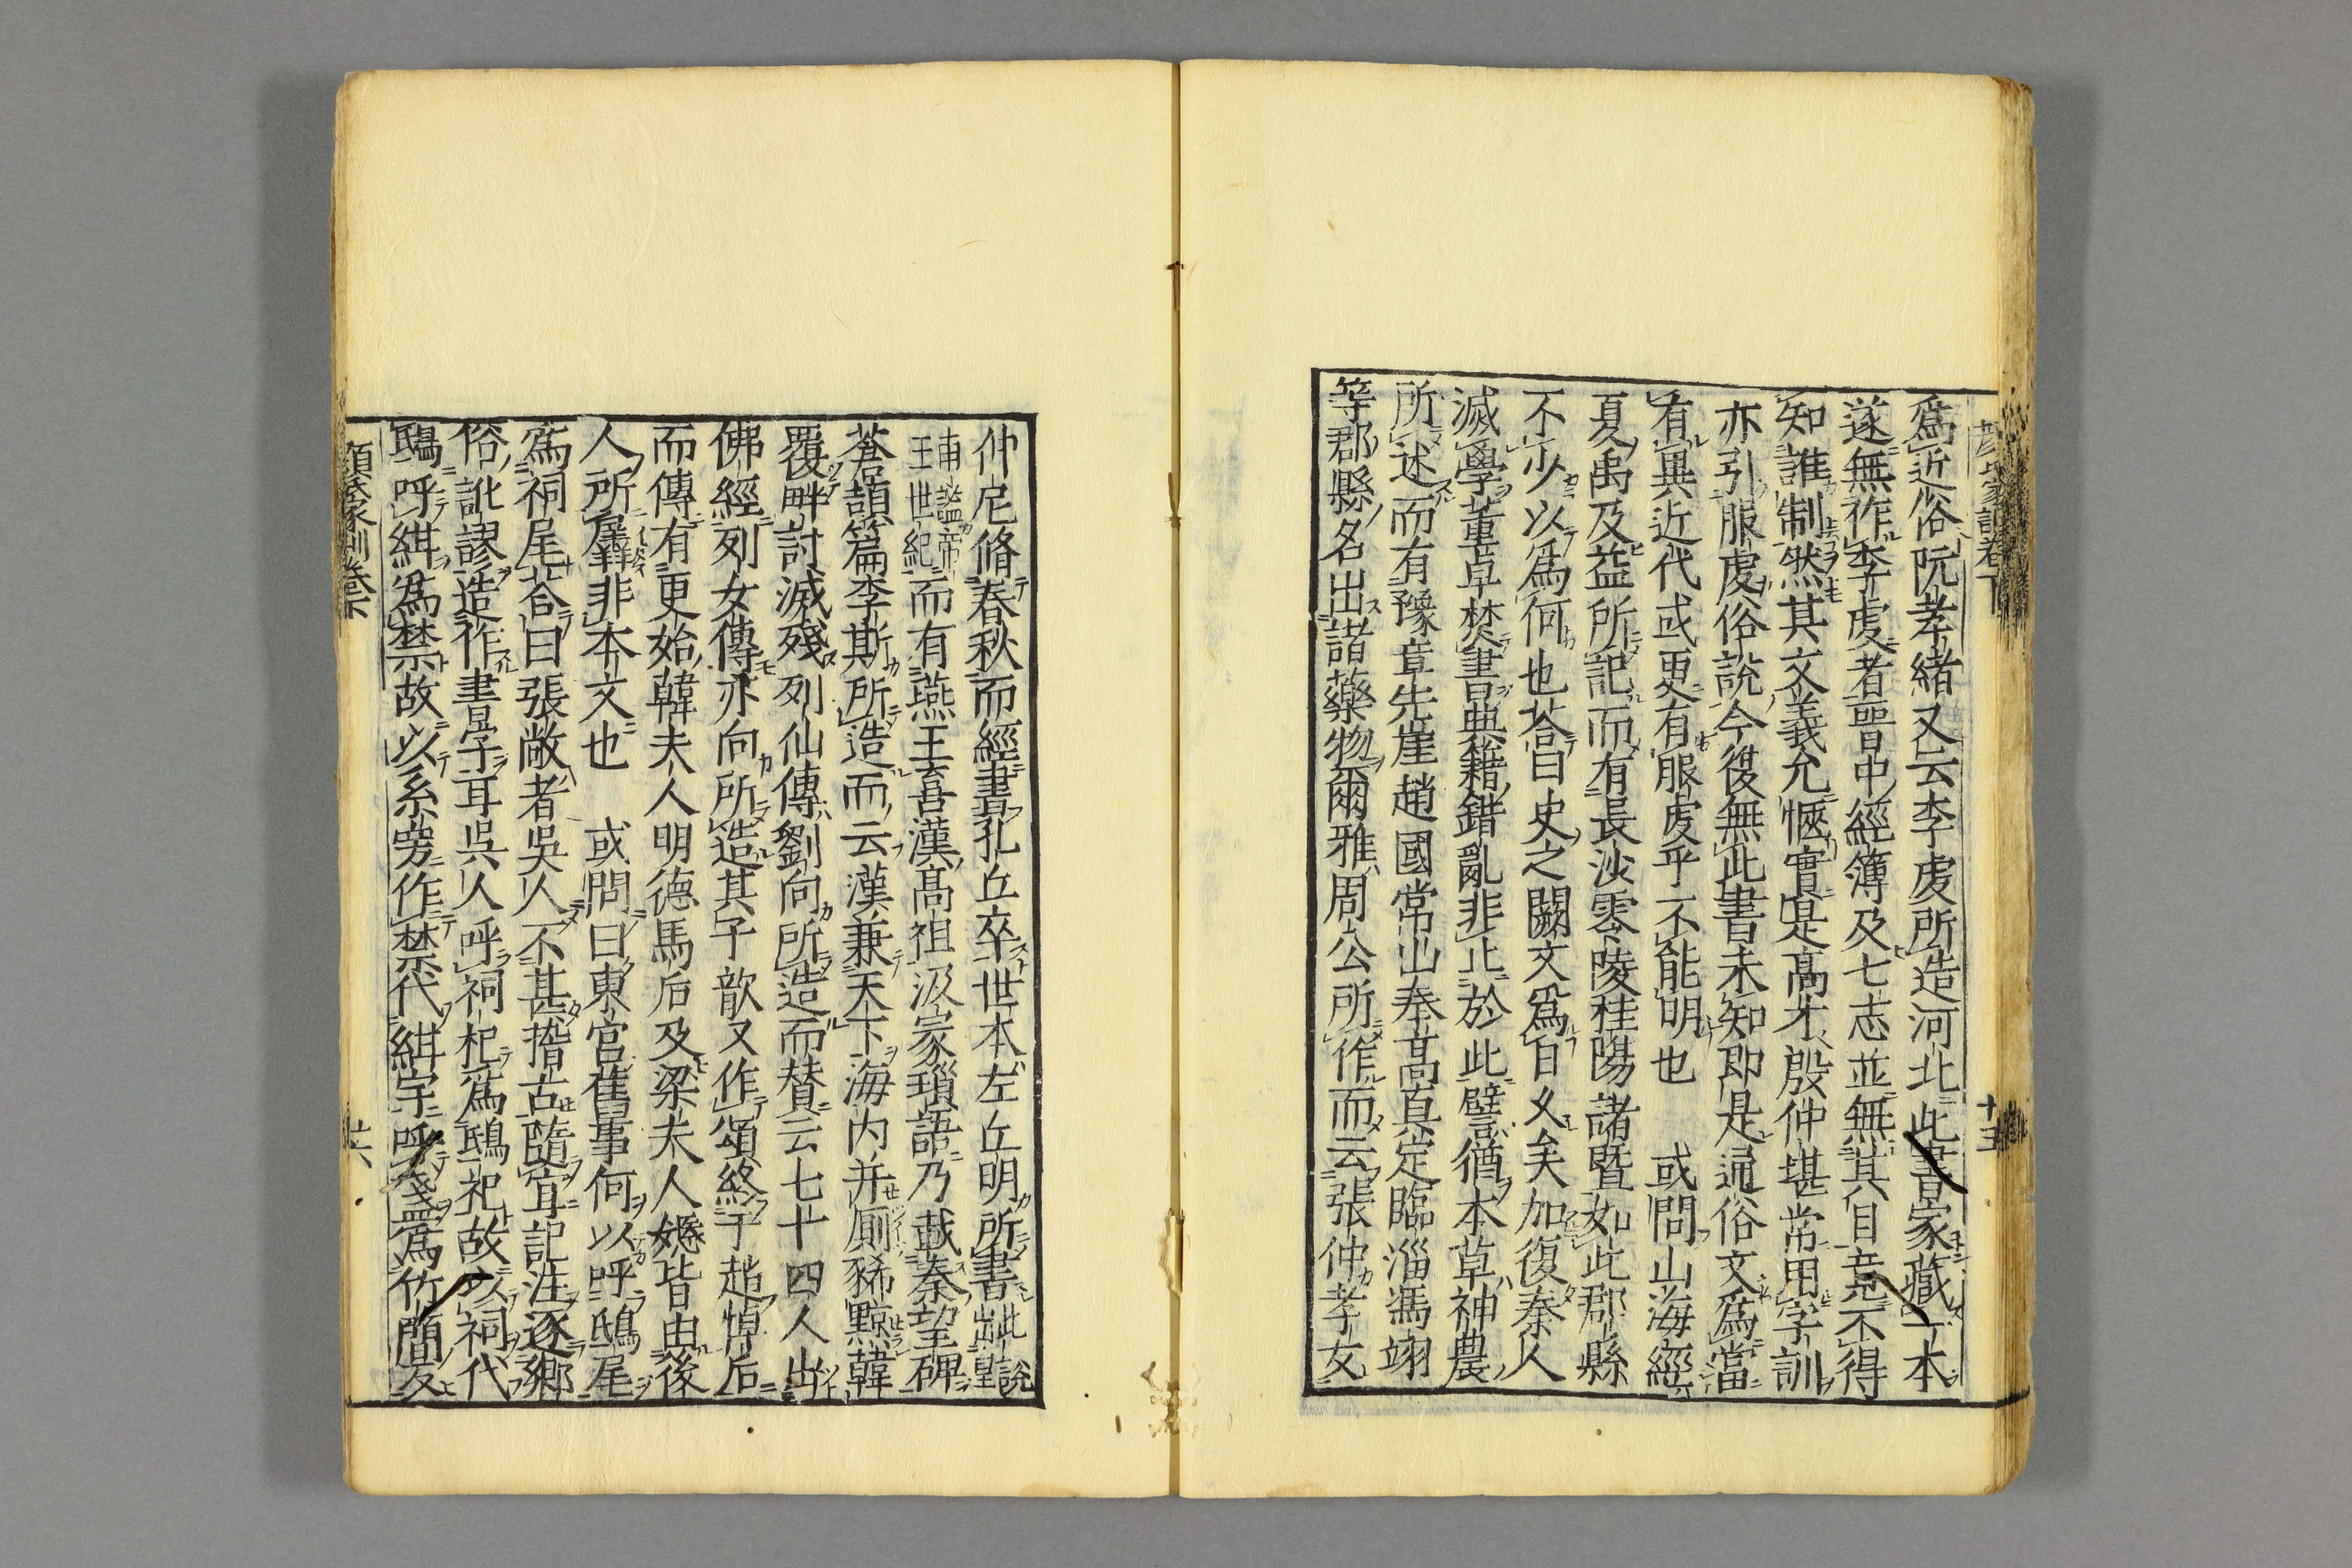 爲近俗阮孝緒又云李虔所造河北此書家藏一本
遂無作李虔者晉中經簿及七志並無其目竟不得
知誰制然其文義允愜實是髙才殷仲堪常用字訓
亦引服虔俗說今復無此書未知即是通俗文爲當
有異近代或更有服虔乎不能明也　或問山海經
夏禹及益所記而有長沙零陵桂陽諸暨如此郡縣
不少以爲何也荅曰史之闕文爲日久矣加復秦人
滅學董卓焚書典籍錯亂非止於此譬猶本草神農
所述而有豫章朱崖趙國常山奉髙真定臨淄馮翊
等郡縣名出諸藥物爾雅周公所作而云張仲孝友
仲尼脩春秋而經書孔丘卒世本左丘明所書此說出皇
甫謐帝王世紀而有燕王喜漢髙祖汲冢瑣語乃載秦望碑
蒼頡篇李斯所造而云漢兼天下海內并廁豨黥韓
覆畔討滅殘列仙傳劉向所造而賛云七十四人出
佛經列女傳亦向所造其子歆又作頌終于趙悼后
而傳有更始韓夫人明德馬后及梁夫人嫕皆由後
人所羼非本文也　或問曰東宮舊事何以呼鴟尾
爲祠尾荅曰張敞者吳人不甚稽古隨宜記注逐鄉
俗訛謬造作書字耳吳人呼祠祀爲鴟祀故以祠代
鴟呼紺爲禁故以糸旁作禁代紺字呼盞爲竹簡反
顔氏家訓卷下
十三
顔氏家訓卷下
十六